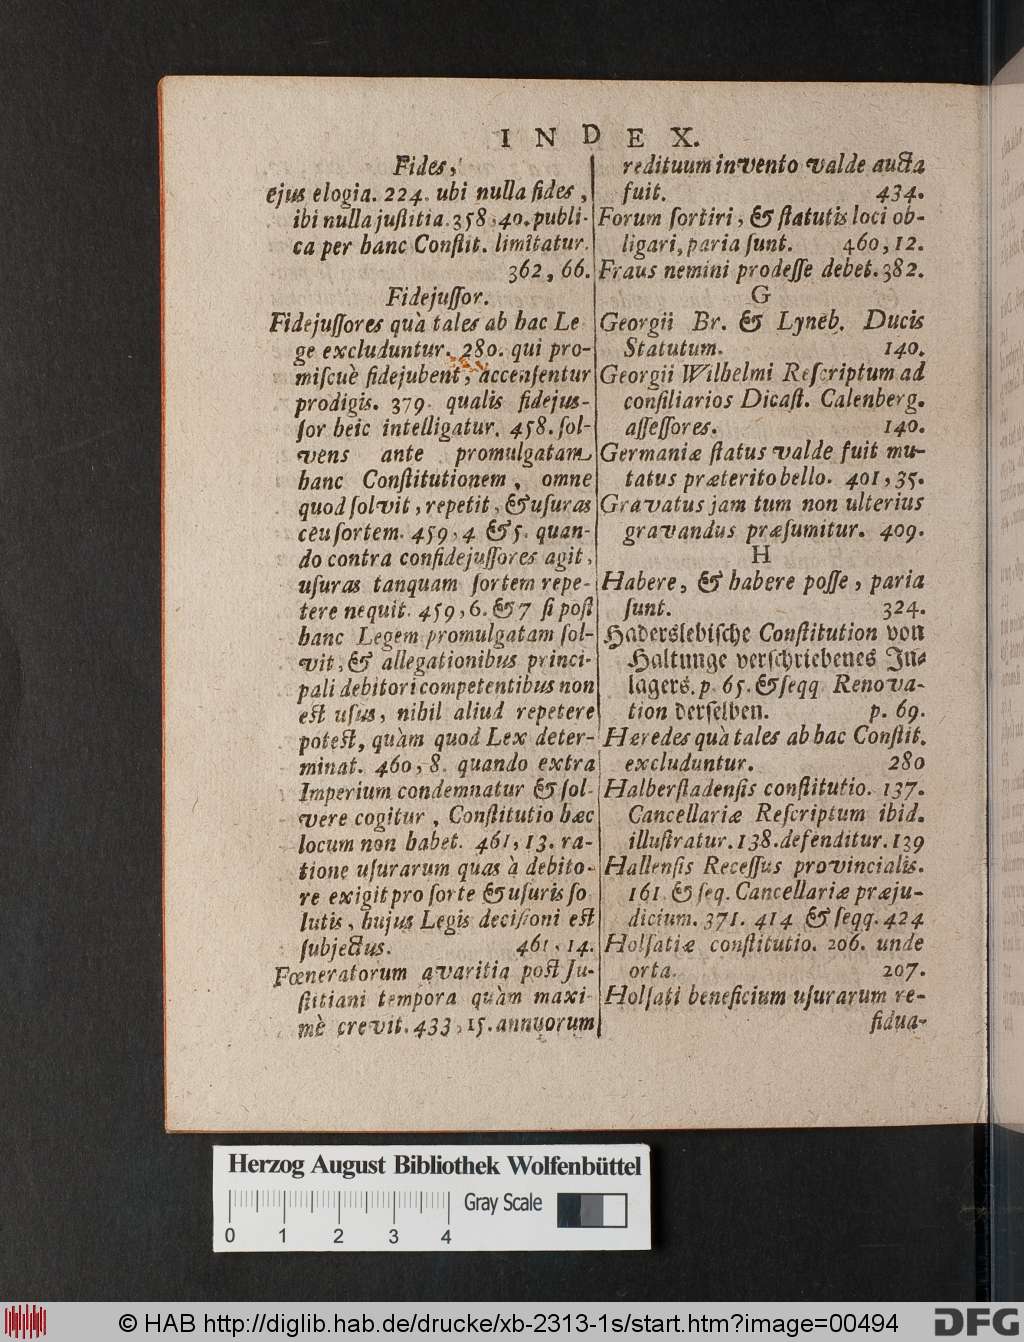 INDEX.
Fides,
ejus elogia. 224. ubi nulla fides,
ibi nulla juſtitia. 358, 40. publi-
ca per hanc Conſtit. limitatur.
362, 66.
Fidejuſſor.
Fidejuſſores quà tales ab hac Le
ge excluduntur. 280. qui pro-
miſcuè fidejubent, accenſentur
prodigis. 379. qualis fidejus-
ſor heic intelligatur. 458. ſol-
vens ante promulgatam
hanc Conſtitutionem, omne
quod ſolvit, repetit, & uſuras
ceu ſortem. 459, 4 & 5. quan-
do contra confidejuſſores agit,
uſuras tanquam ſortem repe-
tere nequit. 459, 6. & 7 ſi poſt
hanc Legem promulgatam ſol-
vit, & allegationibus princi-
pali debitori competentibus non
eſt uſus, nihil aliud repetere
poteſt, quàm quod Lex deter-
minat. 460, 8. quando extra
Imperium condemnatur & ſol-
vere cogitur, Conſtitutio hæc
locum non habet. 461, 13. ra-
tione uſurarum quas à debito-
re exigit pro ſorte & uſuris ſo
lutis, hujus Legis deciſioni eſt
ſubjectus. 461, 14.
Fœneratorum avaritia poſt Ju-
ſtitiani tempora quàm maxi-
mè crevit. 433, 15. annuorum
redituum invento valde aucta
fuit. 434.
Forum ſortiri, & ſtatutis loci ob-
ligari, paria ſunt. 460, 12.
Fraus nemini prodeſſe debet. 382.
G
Georgii Br. & Lyneb. Ducis
Statutum. 140.
Georgii Wilhelmi Reſcriptum ad
conſiliarios Dicaſt. Calenberg.
aſſeſſores. 140.
Germaniæ ſtatus valde fuit mu-
tatus præterito bello. 401, 35.
Gravatus jam tum non ulterius
gravandus præſumitur. 409.
H
Habere, & habere poſſe, paria
ſunt. 324.
Haderslebiſche Conſtitution von
Haltunge verſchriebenes In-
lagers. p. 65. & ſeqq Renova-
tion derſelben. p. 69.
Hæredes quà tales ab hac Conſtit.
excluduntur. 280
Halberſtadenſis conſtitutio. 137.
Cancellariæ Reſcriptum ibid.
illuſtratur. 138. defenditur. 139
Hallenſis Receſſus provincialis.
161. & ſeq. Cancellariæ præju-
dicium. 371. 414 & ſeqq. 424
Holſatiæ conſtitutio. 206. unde
orta. 207.
Holſati beneficium uſurarum re-
ſidua-
Herzog August Bibliothek Wolfenbüttel
Gray Scale
0 1 2 3 4
© HAB http://diglib.hab.de/drucke/xb-2313-1s/start.htm?image=00494
DFG